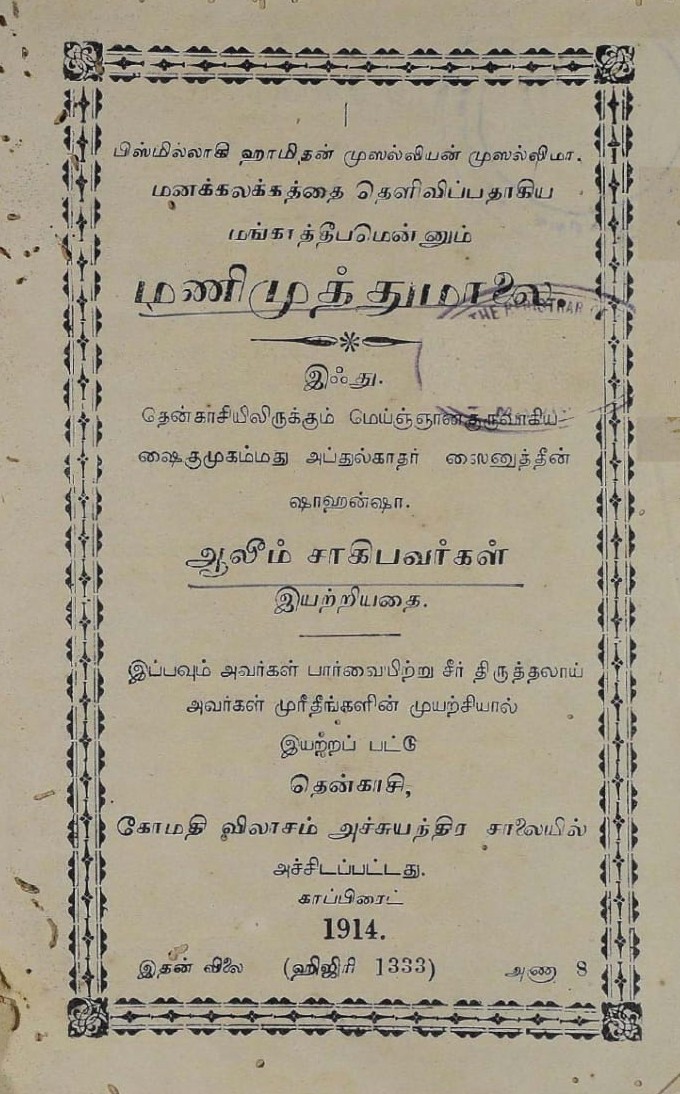 பிஸ்மில்லாகி ஹாமிதன் முஸல்லியன் முஸல்லிமா.
மனக்கலக்கத்தை தெளிவிப்பதாகிய
மங்காத்தீபமென்னும்
மணிமுத்துமாலை.
THE REGISTRAR OF
இஃது.
தென்காசியிலிருக்கும் மேய்ஞ்ஞானகுருவாகிய
ஷைகுமுகம்மது அப்துல்காதர் ஸைனுத்தீன்
ஷாஹன்ஷா.
ஆலீம் சாகிபவர்கள்
இயற்றியதை.
இப்பவும் அவர்கள் பார்வையிற்று சீர் திருத்தலாய்
அவர்கள் முரீதீங்களின் முயற்சியால்
இயற்றப் பட்டு
தென்காசி,
கோமதி விலாசம் அச்சுயந்திர சாலையில்
அச்சிடப்பட்டது.
காப்பிரைட்
1914.
இதன் விலை (ஹிஜிரி 1333) அணா 8